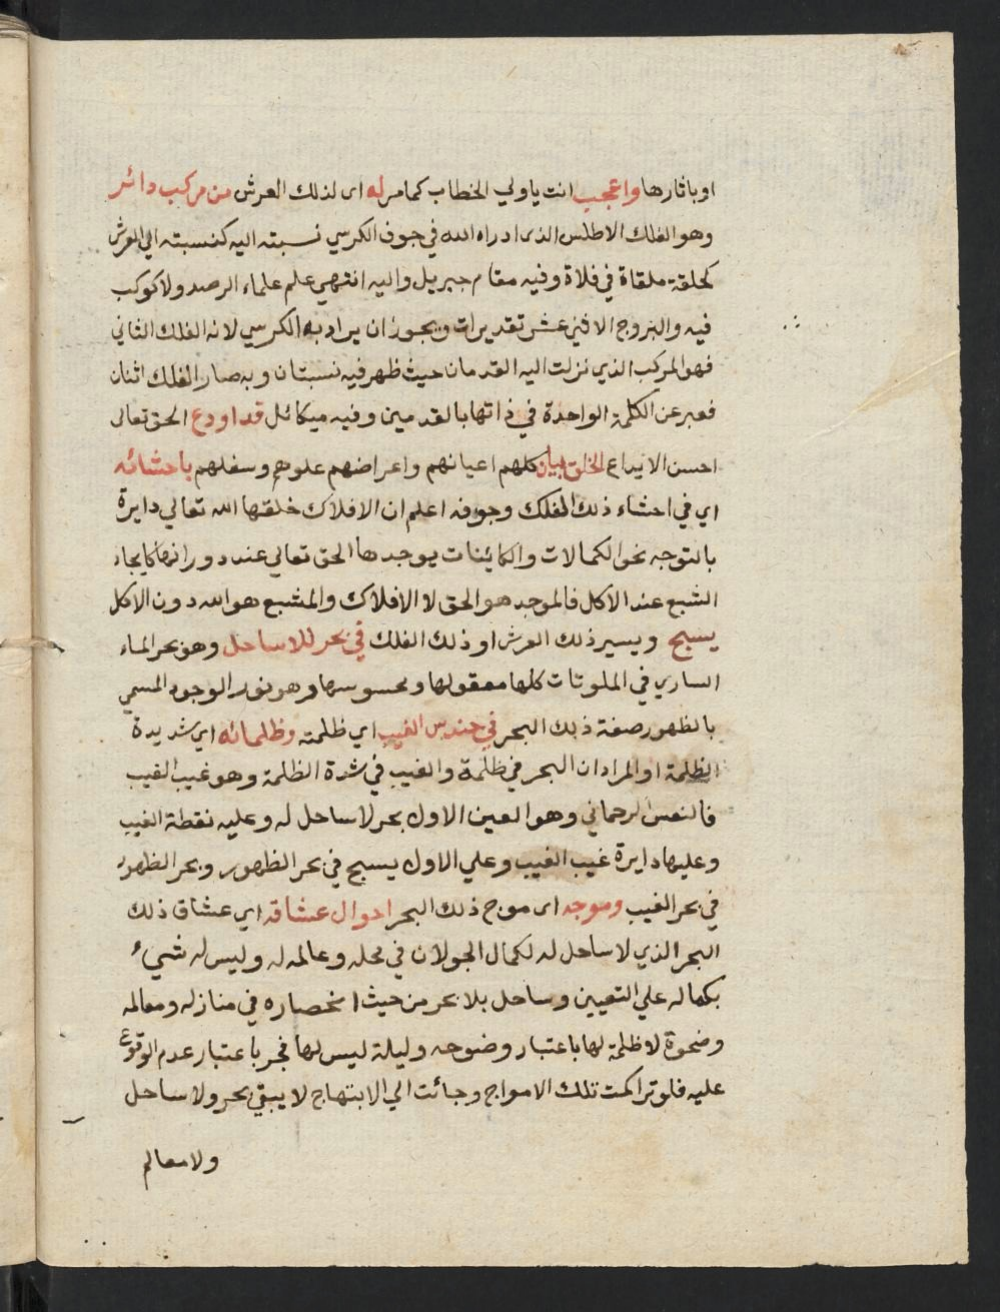 او باثارها واعجب انت ياولي الخطاب كمامر له اى لذلك العرش من مركب دائر
وهو الفلك الاطلس الذى اداره الله في جوف الكرسي نسبته اليه كنسبته الي العرش
كحلقة ملقاة في فلاة وفيه مقام جبريل واليه انتهي علم علماء الرصد ولا كوكب
فيه والبروج الاثني عشر تقديرات ويجوز ان يراد به الكرسي لانه الفلك الثاني
فهو المركب الذي نزلت اليه القدمان حيث ظهر فيه نسبتان وبه صار الفلك اثنان
فعبر عن الكلمة الواحدة في ذاتها بالقدمين وفيه ميكائل قد اودع الحق تعالى
احسن الايداع الخلق كلهم اعيانهم واعراضهم علوهم وسفلهم باحشائه
اي في احشاء ذلك الفلك وجوفه اعلم ان الافلاك خلقها الله تعالي دايرة
بالتوجه نحو الكمالات والكائنات يوجدها الحق تعالي عند دورانها كايجاد
الشبع عند الاكل فالموجد هو الحق لا الافلاك والمشبع هو الله دون الاكل
يسبح ويسير ذلك العرش او ذلك الفلك في بحر للا ساحل وهو بحر الماء
الساري في الملونات كلها معقولها ومحسوسها وهو نور الوجود المسمي
بالظهور صفة ذلك البحر في حندس الغيب اي ظلمته وظلمائه اي شديدة
الظلمة او المراد ان البحر في ظلمة والغيب في شدة الظلمة وهو غيب الغيب
فالنفس الرحماني وهو العين الاول بحر لا ساحل له وعليه نقطة الغيب
وعليها دايرة غيب الغيب وعلي الاول يسبح في بحر الظهور وبحر الظهور
في بحر الغيب وموجه اى موج ذلك البحر احوال عشاقه اي عشاق ذلك
البحر الذي لا ساحل له لكمال الجولان في محله وعالمه له وليس له شيء
بكماله علي التعيين وساحل بلا بحر من حيث انحصاره في منازله ومعالمه
وضحوة لا ظلمة لها باعتبار وضوحه وليلة ليس لها فجر باعتبار عدم الوقوع
عليه فلو تراكمت تلك الامواج وجائت الي الابتهاج لا يبقي بحر ولا ساحل
ولا معالم